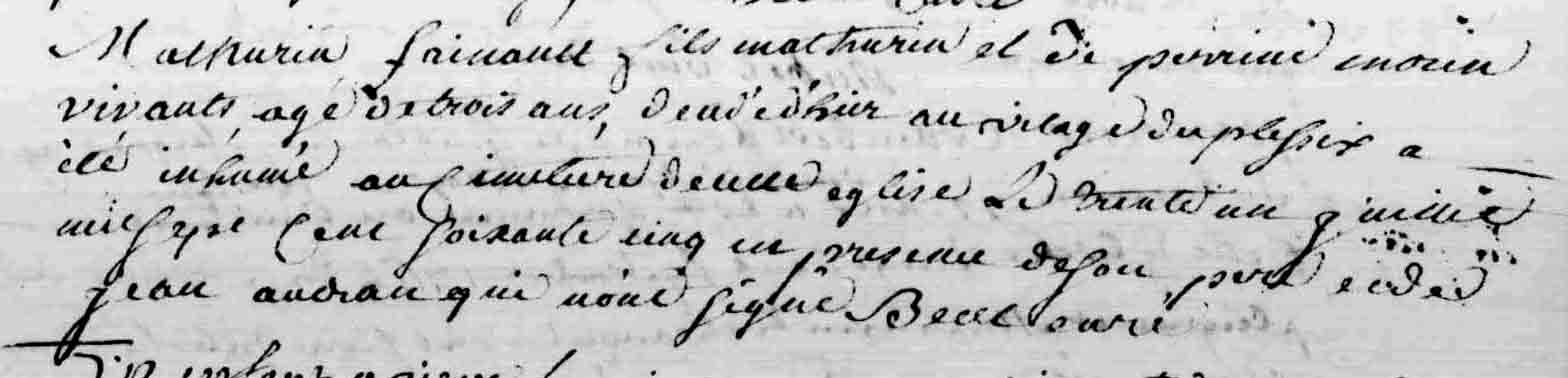 Mathurin fainault fils mathurin et de perrine morin
vivants, agé de trois ans, decedé d'hier au vilage du plessix a
été inhumé au cimeture de cette eglise Le trente un juillie
mil sept cent soixante cinq en presence de son pere et de
jean audran qui n'ont signé Becel curé